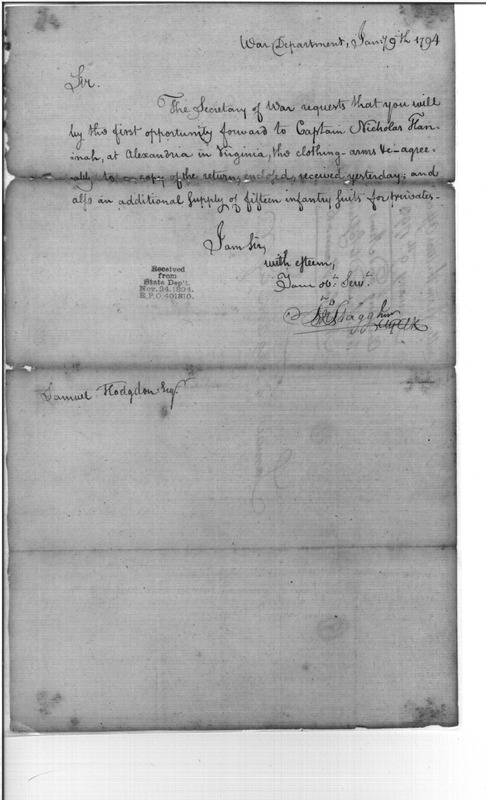 War Department, Jany. 9th 1794
Sir.
The Secretary of War requests that you will
by the first opportunity forward to Captain Nicholas Han-
nah, at Alexandria in Virginia, the clothing - arms &c - agree-
ably to a copy of the return, enclosed, received yesterday; and
also an additional supply of fifteen infantry suits for privates -
I am Sir,
with esteem,
Your ob. Serv.
Jno Stagg Junr
Received
from
State Dep't.
Nov. 24, 1894.
R.P.O 401810.
Samuel Hodgdon Esqr.